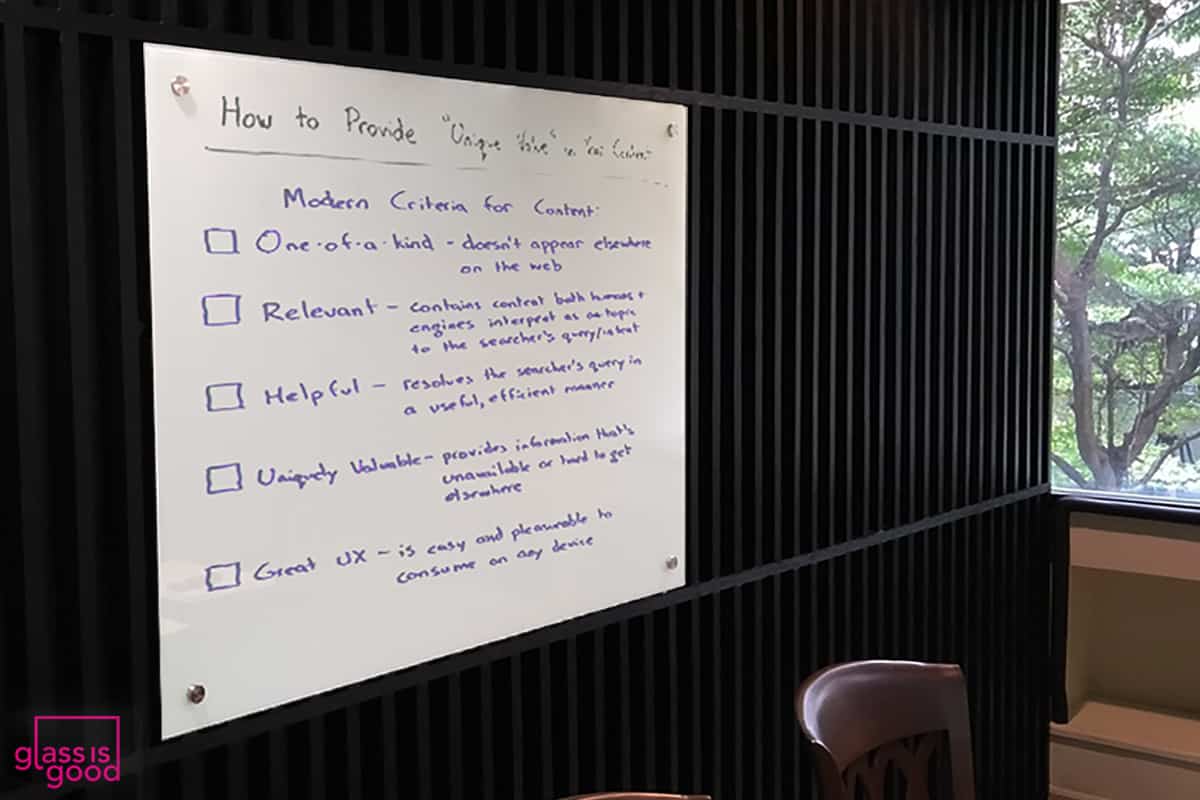 How to Provide "Unique Value" in Your Content
Modern Criteria for Content:
One-of-a-kind - doesn't appear elsewhere
on the web
Relevant - contains content both humans +
engines interpret as on-topic
to the searcher's query/intent
Helpful - resolves the searcher's query in
a useful, efficient manner
Uniquely Valuable - provides information that's
unavailable or hard to get
elsewhere
Great UX - is easy and pleasurable to
consume on any device
glass is
good